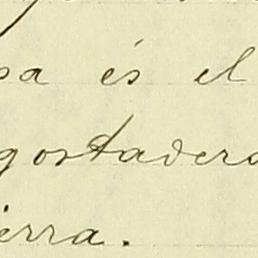 sa és el
gostadero
ierra.